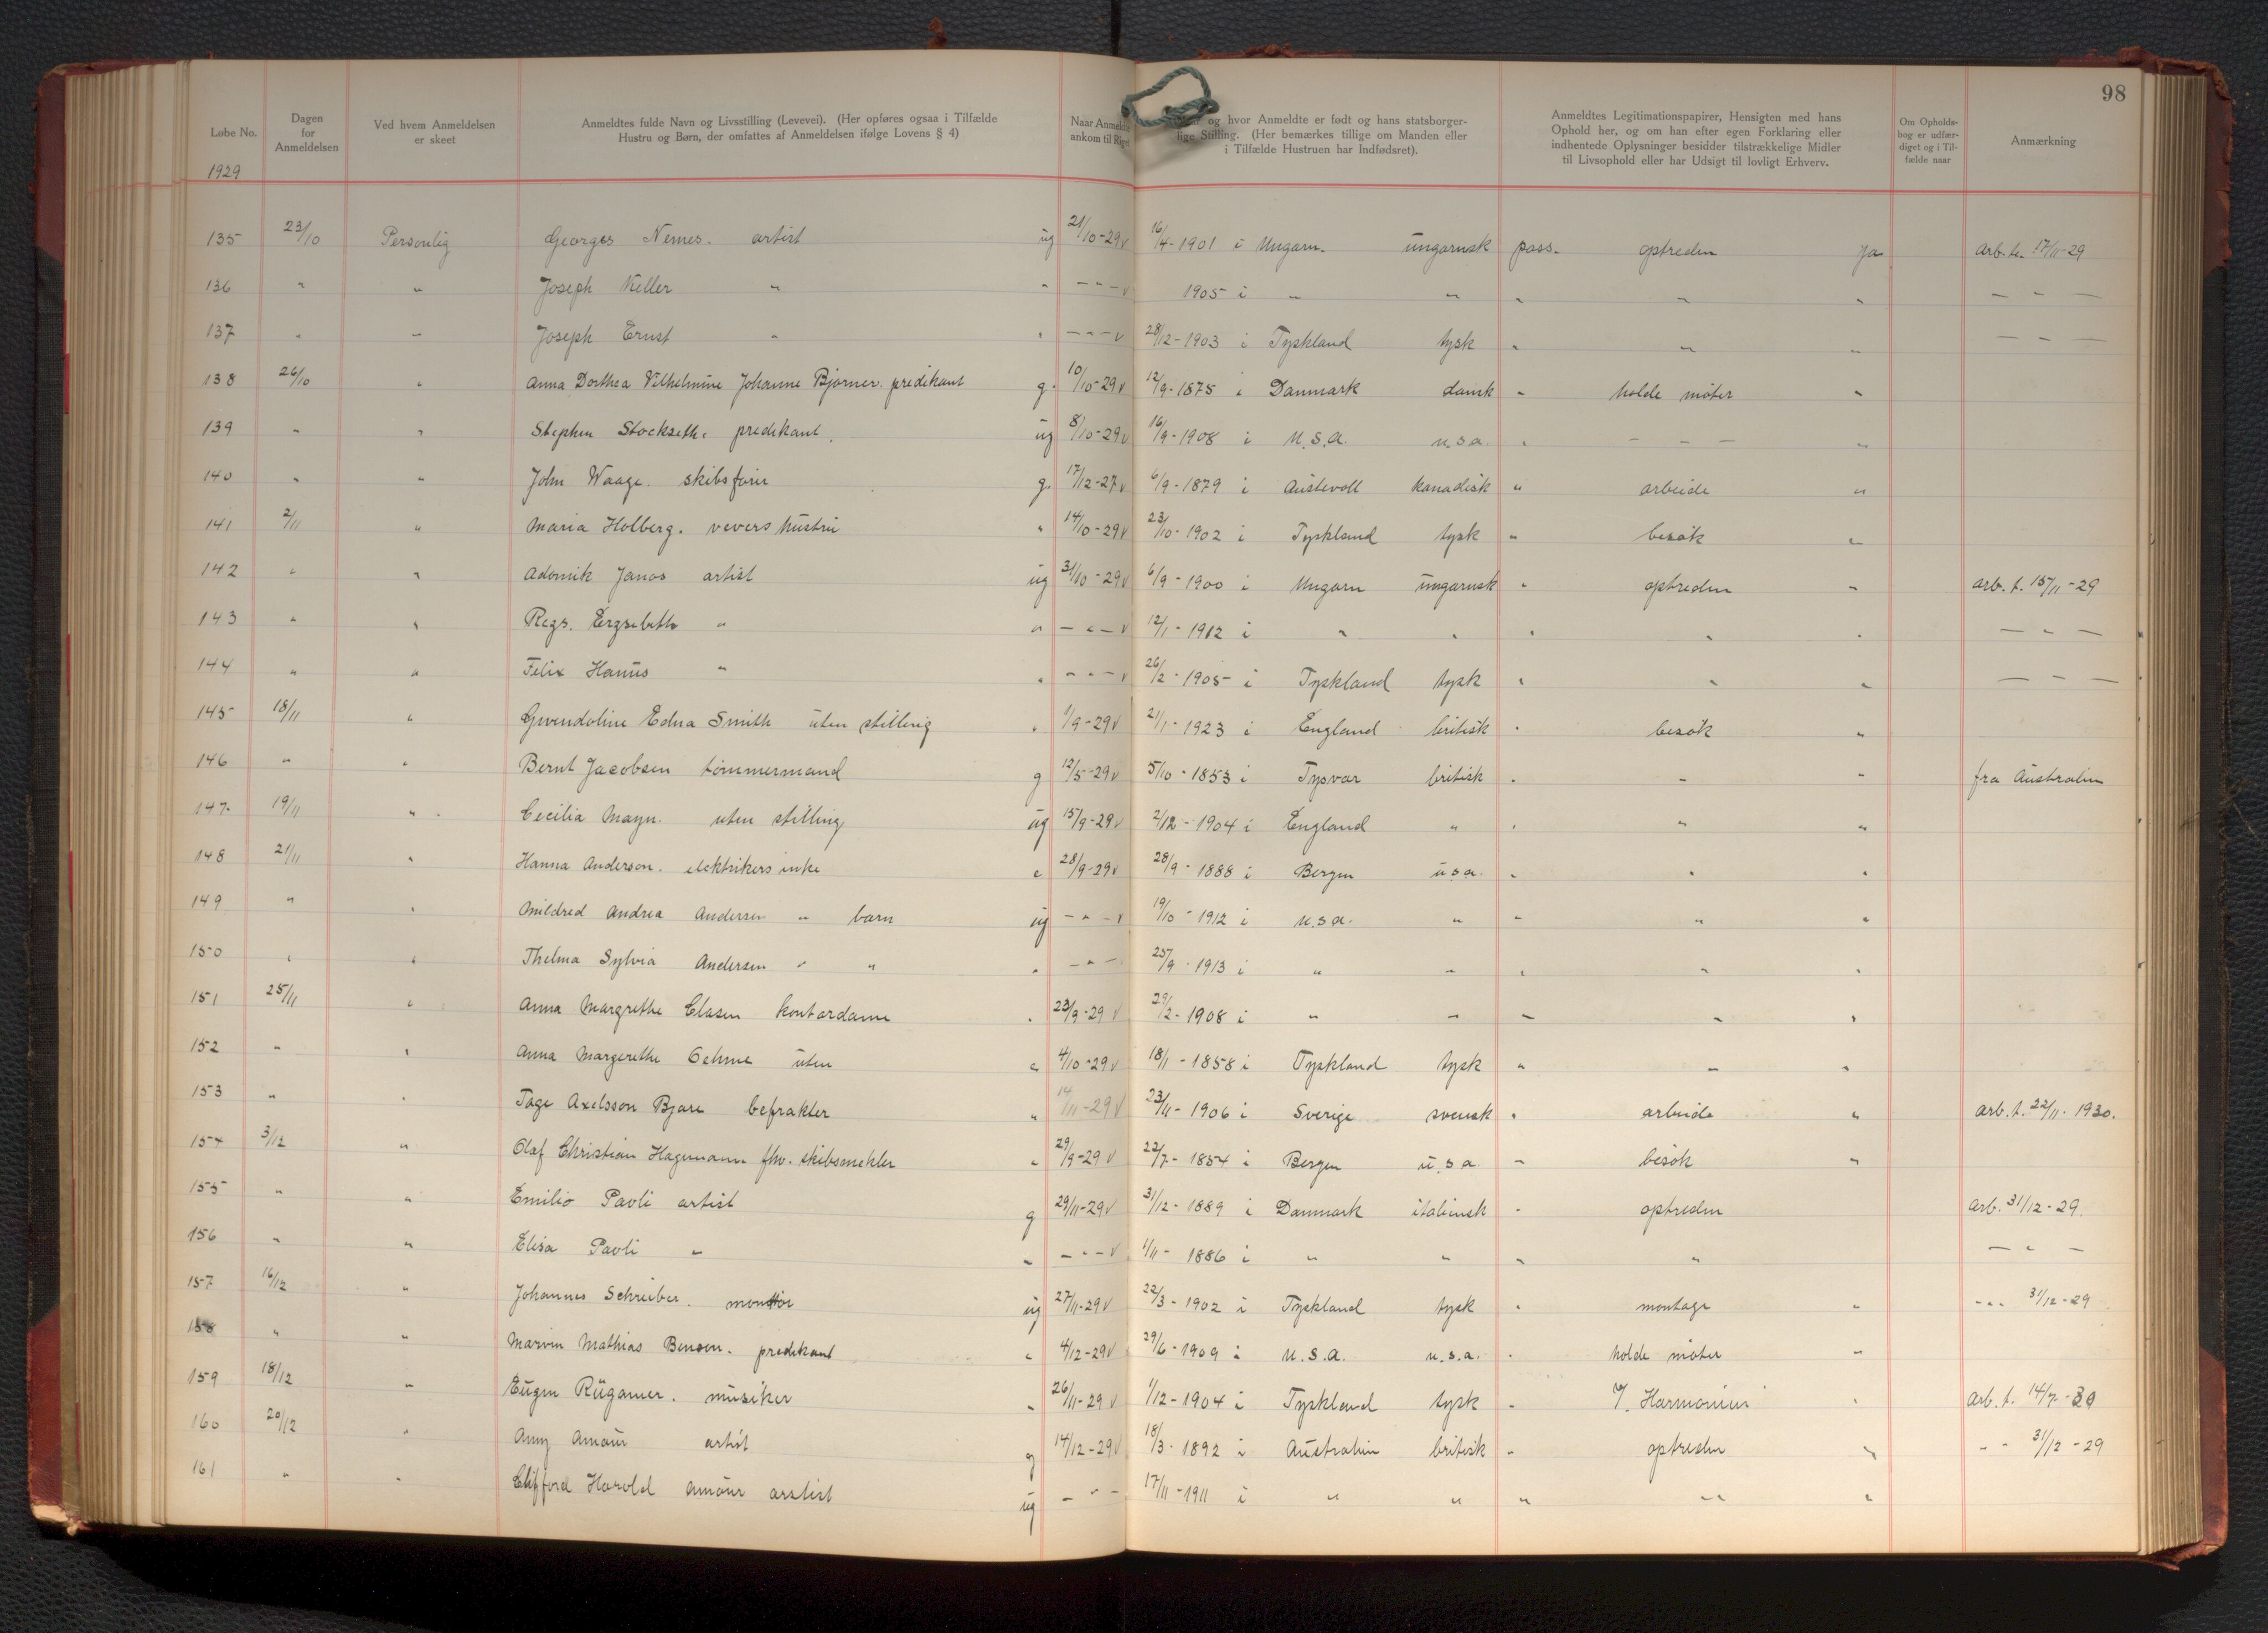 98
Løbe No. Dagen for Anmeldelsen Ved hvem Anmeldelsen er skeet Anmeldtes fulde Navn og Livsstilling (Levevei). (Her opføres ogsaa i Tilfælde Hustru og Børn, der omfattes af Anmeldelsen ifølge Lovens § 4) Naar Anmeldte ankom til Riget og hvor Anmeldte er født og hans statsborgerlige Stilling. (Her bemærkes tillige om Manden eller i Tilfælde Hustruen har Indfødsret). Anmeldtes Legitimationspapirer, Hensigten med hans Ophold her, og om han efter egen Forklaring eller indhentede Oplysninger besidder tilstrækkelige Midler til Livsophold eller har Udsigt til lovligt Erhverv. Om Opholdsbog er udfærdiget og i Tilfælde naar Anmærkning
1929
135 23/10 Personlig Georges Nemes. artist ug 21/10-29 v 16/4-1901 i Ungarn. ungarnsk pass. optreden ja arb.t. 17/11-29
136 " " Joseph Keller " " - " - v 1905 i " " " " " - " -
137 " - Joseph Ernst " " - " - v 28/12-1903 i Tyskland tysk " " " - " -
138 26/10 " Anna Dorthea Vilhelmine Johanne Bjørner. predikant g. 10/10-29 v 12/9-1875 i Danmark dansk " holde møter "
139 " " Stephen Stockseth. predikant. ug 8/10-29 v 16/9-1908 i U.S.A. u.s.a. " - - - "
140 " " John Waage. skibsfører g. 17/12-27 v 6/9-1879 i Austevoll kanadisk " arbeide "
141 2/11 " Maria Holberg. vevers hustru " 14/10-29 v 23/10-1902 i Tyskland tysk " besøk "
142 " " Adomik Janos artist ug 31/10-29 v 6/9-1900 i Ungarn ungarnsk " optreden " arb.t. 15/11-29
143 " " Regs. Erzsebeth " " - " - v 12/1-1912 i " " " " " - " -
144 " " Felix Hanus " " - " - v 26/2-1905 i Tyskland tysk " " " - " -
145 18/11 " Gwendoline Edna Smith uten stilling " 1/9-29 v 21/1-1923 i England britisk " besøk "
146 " " Bernt Jacobsen tømmermand g 12/5-29 v 5/10-1853 i Tysvær britisk " " " fra Australien
147 19/11 " Cecilia Mayn. uten stilling ug 15/9-29 v 2/12-1904 i England " " " "
148 21/11 " Hanna Anderson. elektrikers enke e 28/9-29 v 28/9-1888 i Bergen u.s.a. " " "
149 " " Mildred Andrea Andersen " barn ug - " - v 19/10-1912 i u.s.a. " " " "
150 " " Thelma Sylvia Andersen " " " - " - 25/9-1913 i " " " " "
151 25/11 " Anna Margrethe Clasen kontordame " 23/9-29 v 29/2-1908 i " " " " "
152 " " Anna Margerethe Oehme uten " 4/10-29 v 18/1-1858 i Tyskland tysk " " "
153 " " Tage Axelsson Bjare befrakter " 14/11-29 v 23/11-1906 i Sverige svensk " arbeide " arb.t. 22/11-1930.
154 3/12 " Olaf Christian Hagemann fhv. skibsmekler " 29/9-29 v 22/7-1854 i Bergen u.s.a " besøk "
155 " " Emilio Paoli artist g 29/11-29 v 31/12-1889 i Danmark italiensk " optreden arb. 31/12-29.
156 " " Elisa Paoli " " - " - v 1/11-1886 i " " " " - " -
157 16/12 " Johannes Schreiber. montør ug 27/11-29 v 22/3-1902 i Tyskland tysk " montage " " " " 31/12-29
158 " " Marvin Mathias Benson. predikant " 4/12-29 v 29/6-1909 i U.S.A. u.s.a. " holde møter "
159 18/12 " Eugen Rügamer. musiker " 26/11-29 v 1/12-1904 i Tyskland tysk " Harmonien " arb.t. 14/7-30
160 20/12 " Amy Amour artist g 14/12-29 v 18/3-1892 i Australien britisk " optreden " " " 31/12-29
161 " " Clifford Harold Amour arstist ug - " - 17/11-1911 i " " " " "